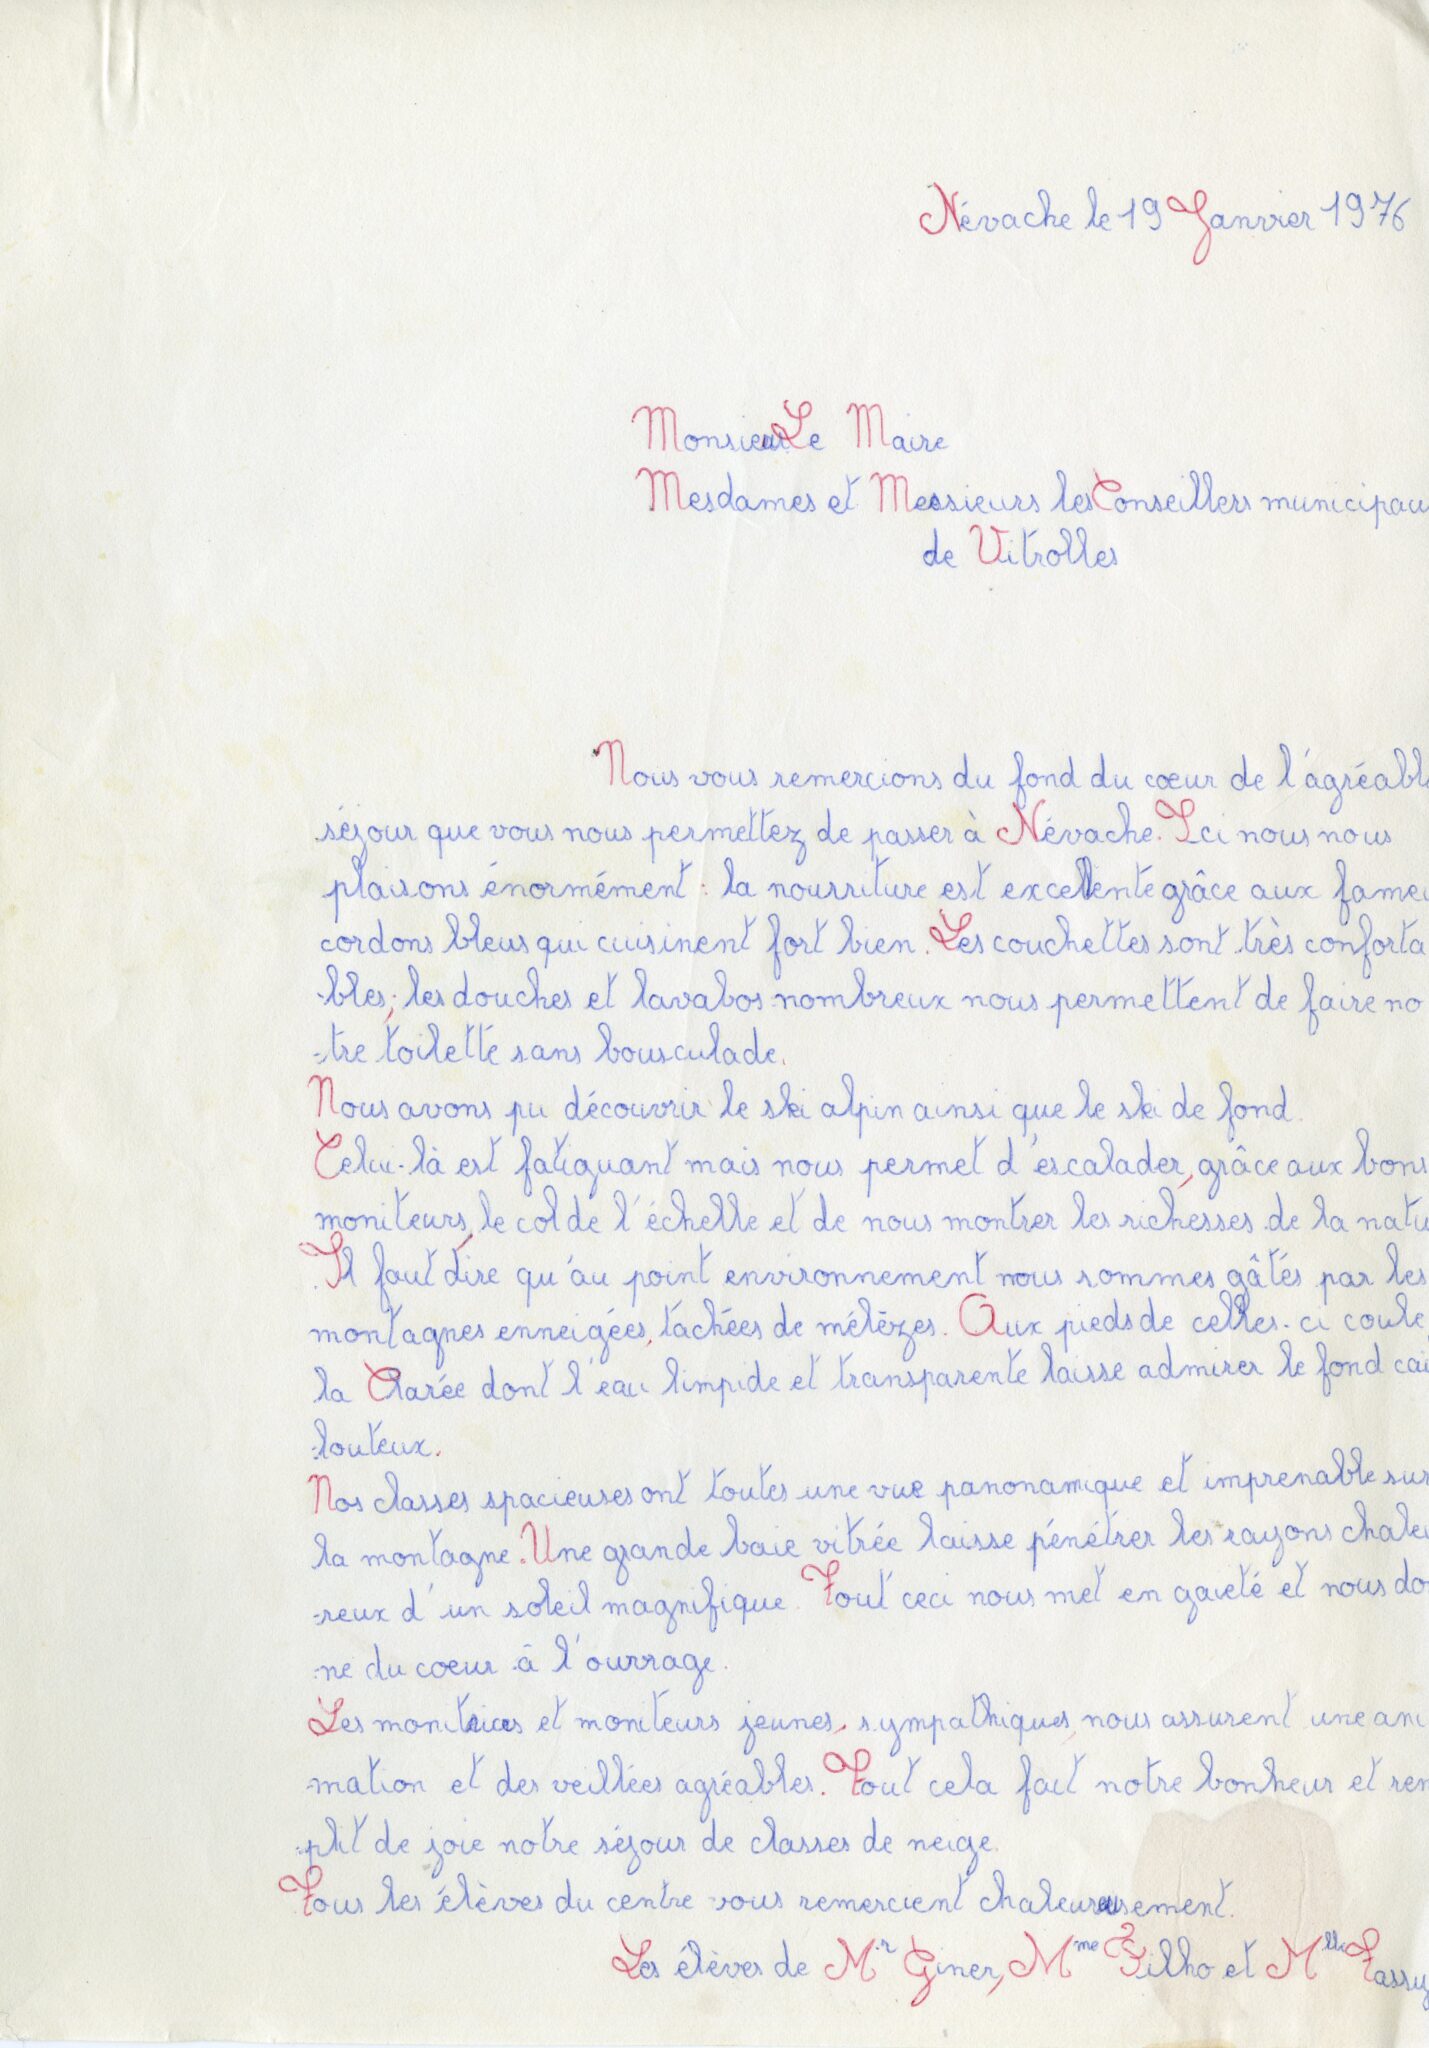 Névache le 19 Janvier 1976
Monsieur Le Maire
Mesdames et Messieurs les Conseillers municipau
de Vitrolles
Nous vous remercions du fond du cœur de l'agréabl
séjour que vous nous permettez de passer à Névache. Ici nous nous
plaisons énormément : la nourriture est excellente grâce aux fameu
cordons bleus qui cuisinent fort bien. Les couchettes sont très conforta
-bles ; les douches et lavabos nombreux nous permettent de faire no
-tre toilette sans bousculade.
Nous avons pu découvrir le ski alpin ainsi que le ski de fond.
Celui-là est fatiguant mais nous permet d'escalader, grâce aux bons
moniteurs, le col de l'échelle et de nous montrer les richesses de la natu
Il faut dire qu'au point environnement nous sommes gâtés par les
montagnes enneigées, tachées de mélèzes. Aux pieds de celles-ci coule
la Clarée dont l'eau limpide et transparente laisse admirer le fond cail
-louteux.
Nos classes spacieuses ont toutes une vue panonamique et imprenable sur
la montagne. Une grande baie vitrée laisse pénétrer les rayons chaleu
-reux d'un soleil magnifique. Tout ceci nous met en gaieté et nous don
-ne du coeur à l'ouvrage.
Les monitrices et moniteurs jeunes, sympathiques, nous assurent une ani
-mation et des veillées agréables. Tout cela fait notre bonheur et rem
-plit de joie notre séjour de classes de neige.
Tous les élèves du centre vous remercient chaleureusement.
Les élèves de Mr Giner, Mme Filho et Mlle